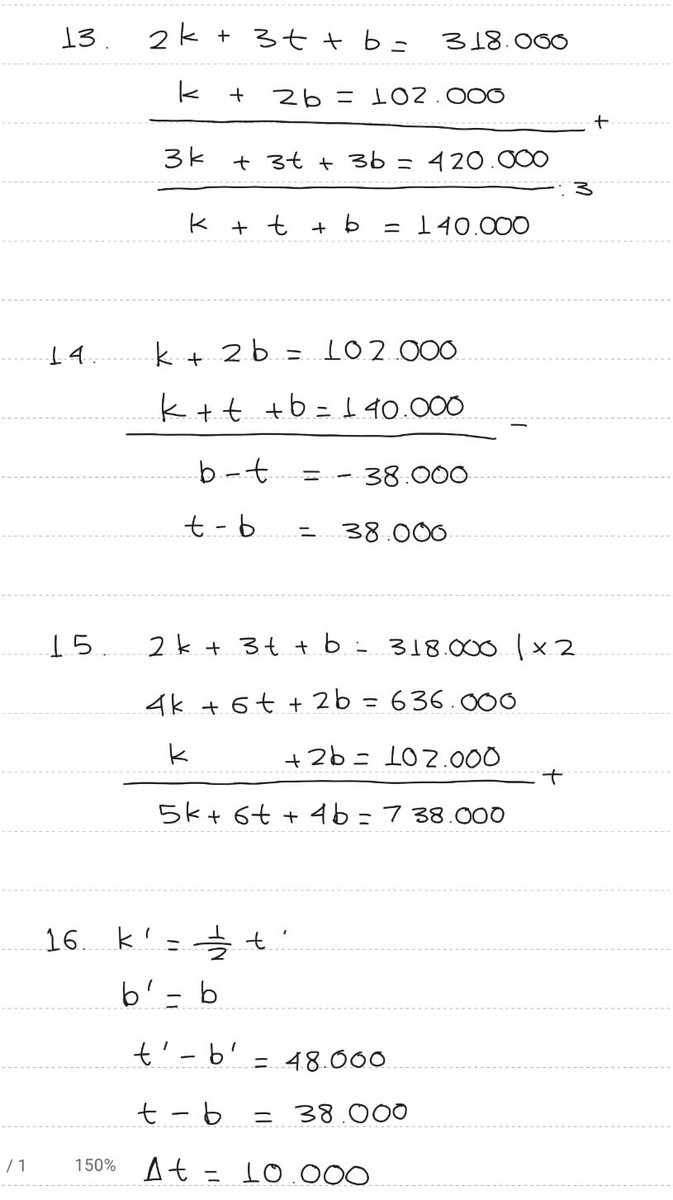 13. 2k + 3t + b = 318.000
k + 2b = 102.000
+
3k + 3t + 3b = 420.000
: 3
k + t + b = 140.000
14. k + 2b = 102.000
k + t + b = 140.000
-
b - t = - 38.000
t - b = 38.000
15. 2k + 3t + b = 318.000 | × 2
4k + 6t + 2b = 636.000
k + 2b = 102.000
+
5k + 6t + 4b = 738.000
16. k' = 1/2 t '
b' = b
t' - b' = 48.000
t - b = 38.000
/ 1 150% Δt = 10.000